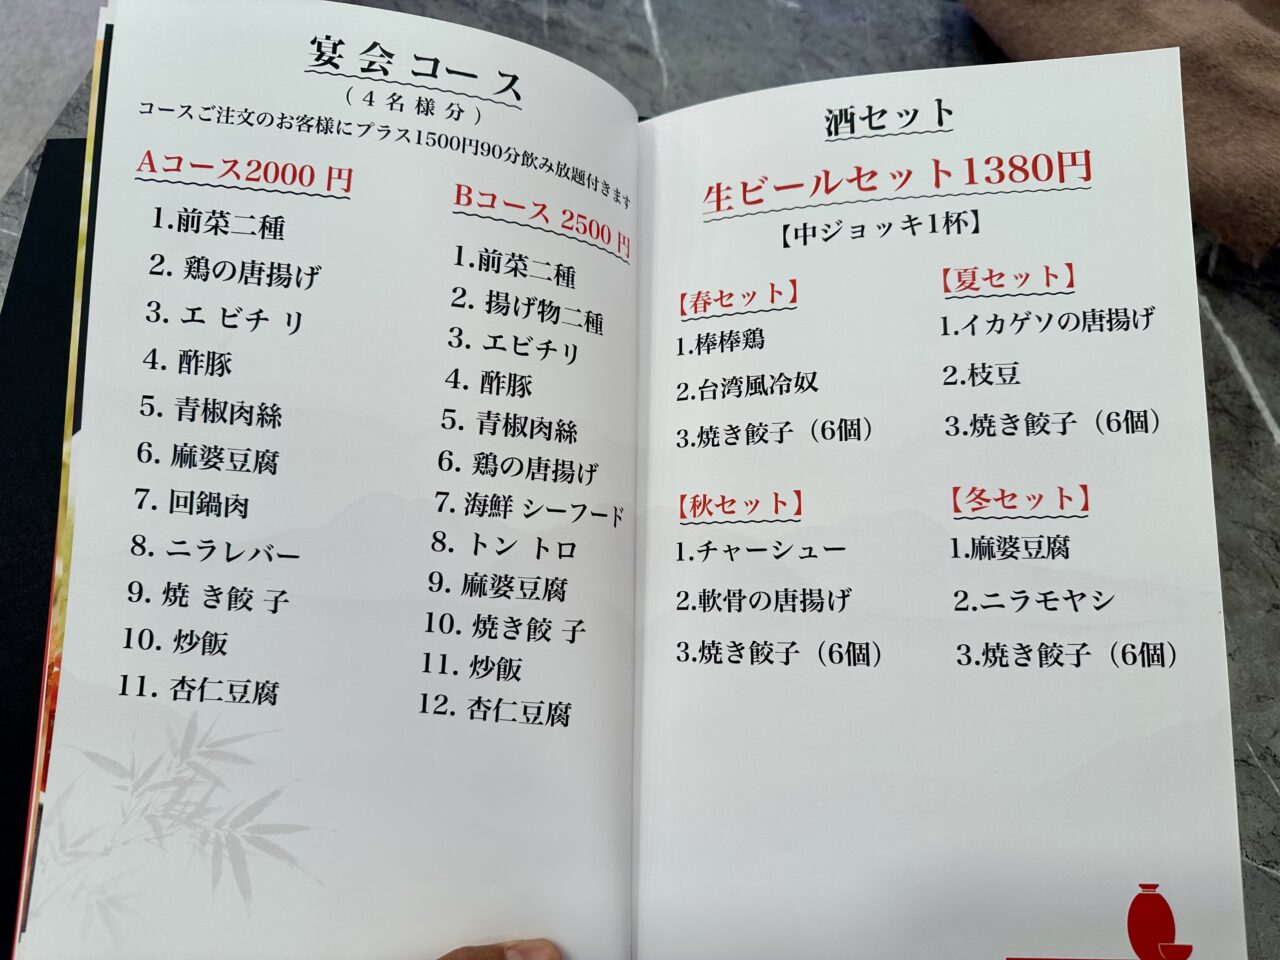 宴会コース
（4名様分）
コースご注文のお客様にプラス1500円90分飲み放題付きます
Aコース2000 円
1.前菜二種
2. 鶏の唐揚げ
3. エ ビチ リ
4. 酢豚
5. 青椒肉絲
6. 麻婆豆腐
7. 回鍋肉
8. ニラレバー
9. 焼 き餃 子
10. 炒飯
11. 杏仁豆腐
Bコース 2500 円
1.前菜二種
2. 揚げ物二種
3. エビチリ
4. 酢豚
5. 青椒肉絲
6. 鶏の唐揚げ
7. 海鮮 シーフード
8. トン トロ
9. 麻婆豆腐
10. 焼き餃 子
11. 炒飯
12. 杏仁豆腐
酒セット
生ビールセット1380円
【中ジョッキ1杯】
【春セット】
1.棒棒鶏
2.台湾風冷奴
3.焼き餃子（6個）
【夏セット】
1.イカゲソの唐揚げ
2.枝豆
3.焼き餃子（6個）
【秋セット】
1.チャーシュー
2.軟骨の唐揚げ
3.焼き餃子（6個）
【冬セット】
1.麻婆豆腐
2.ニラモヤシ
3.焼き餃子（6個）